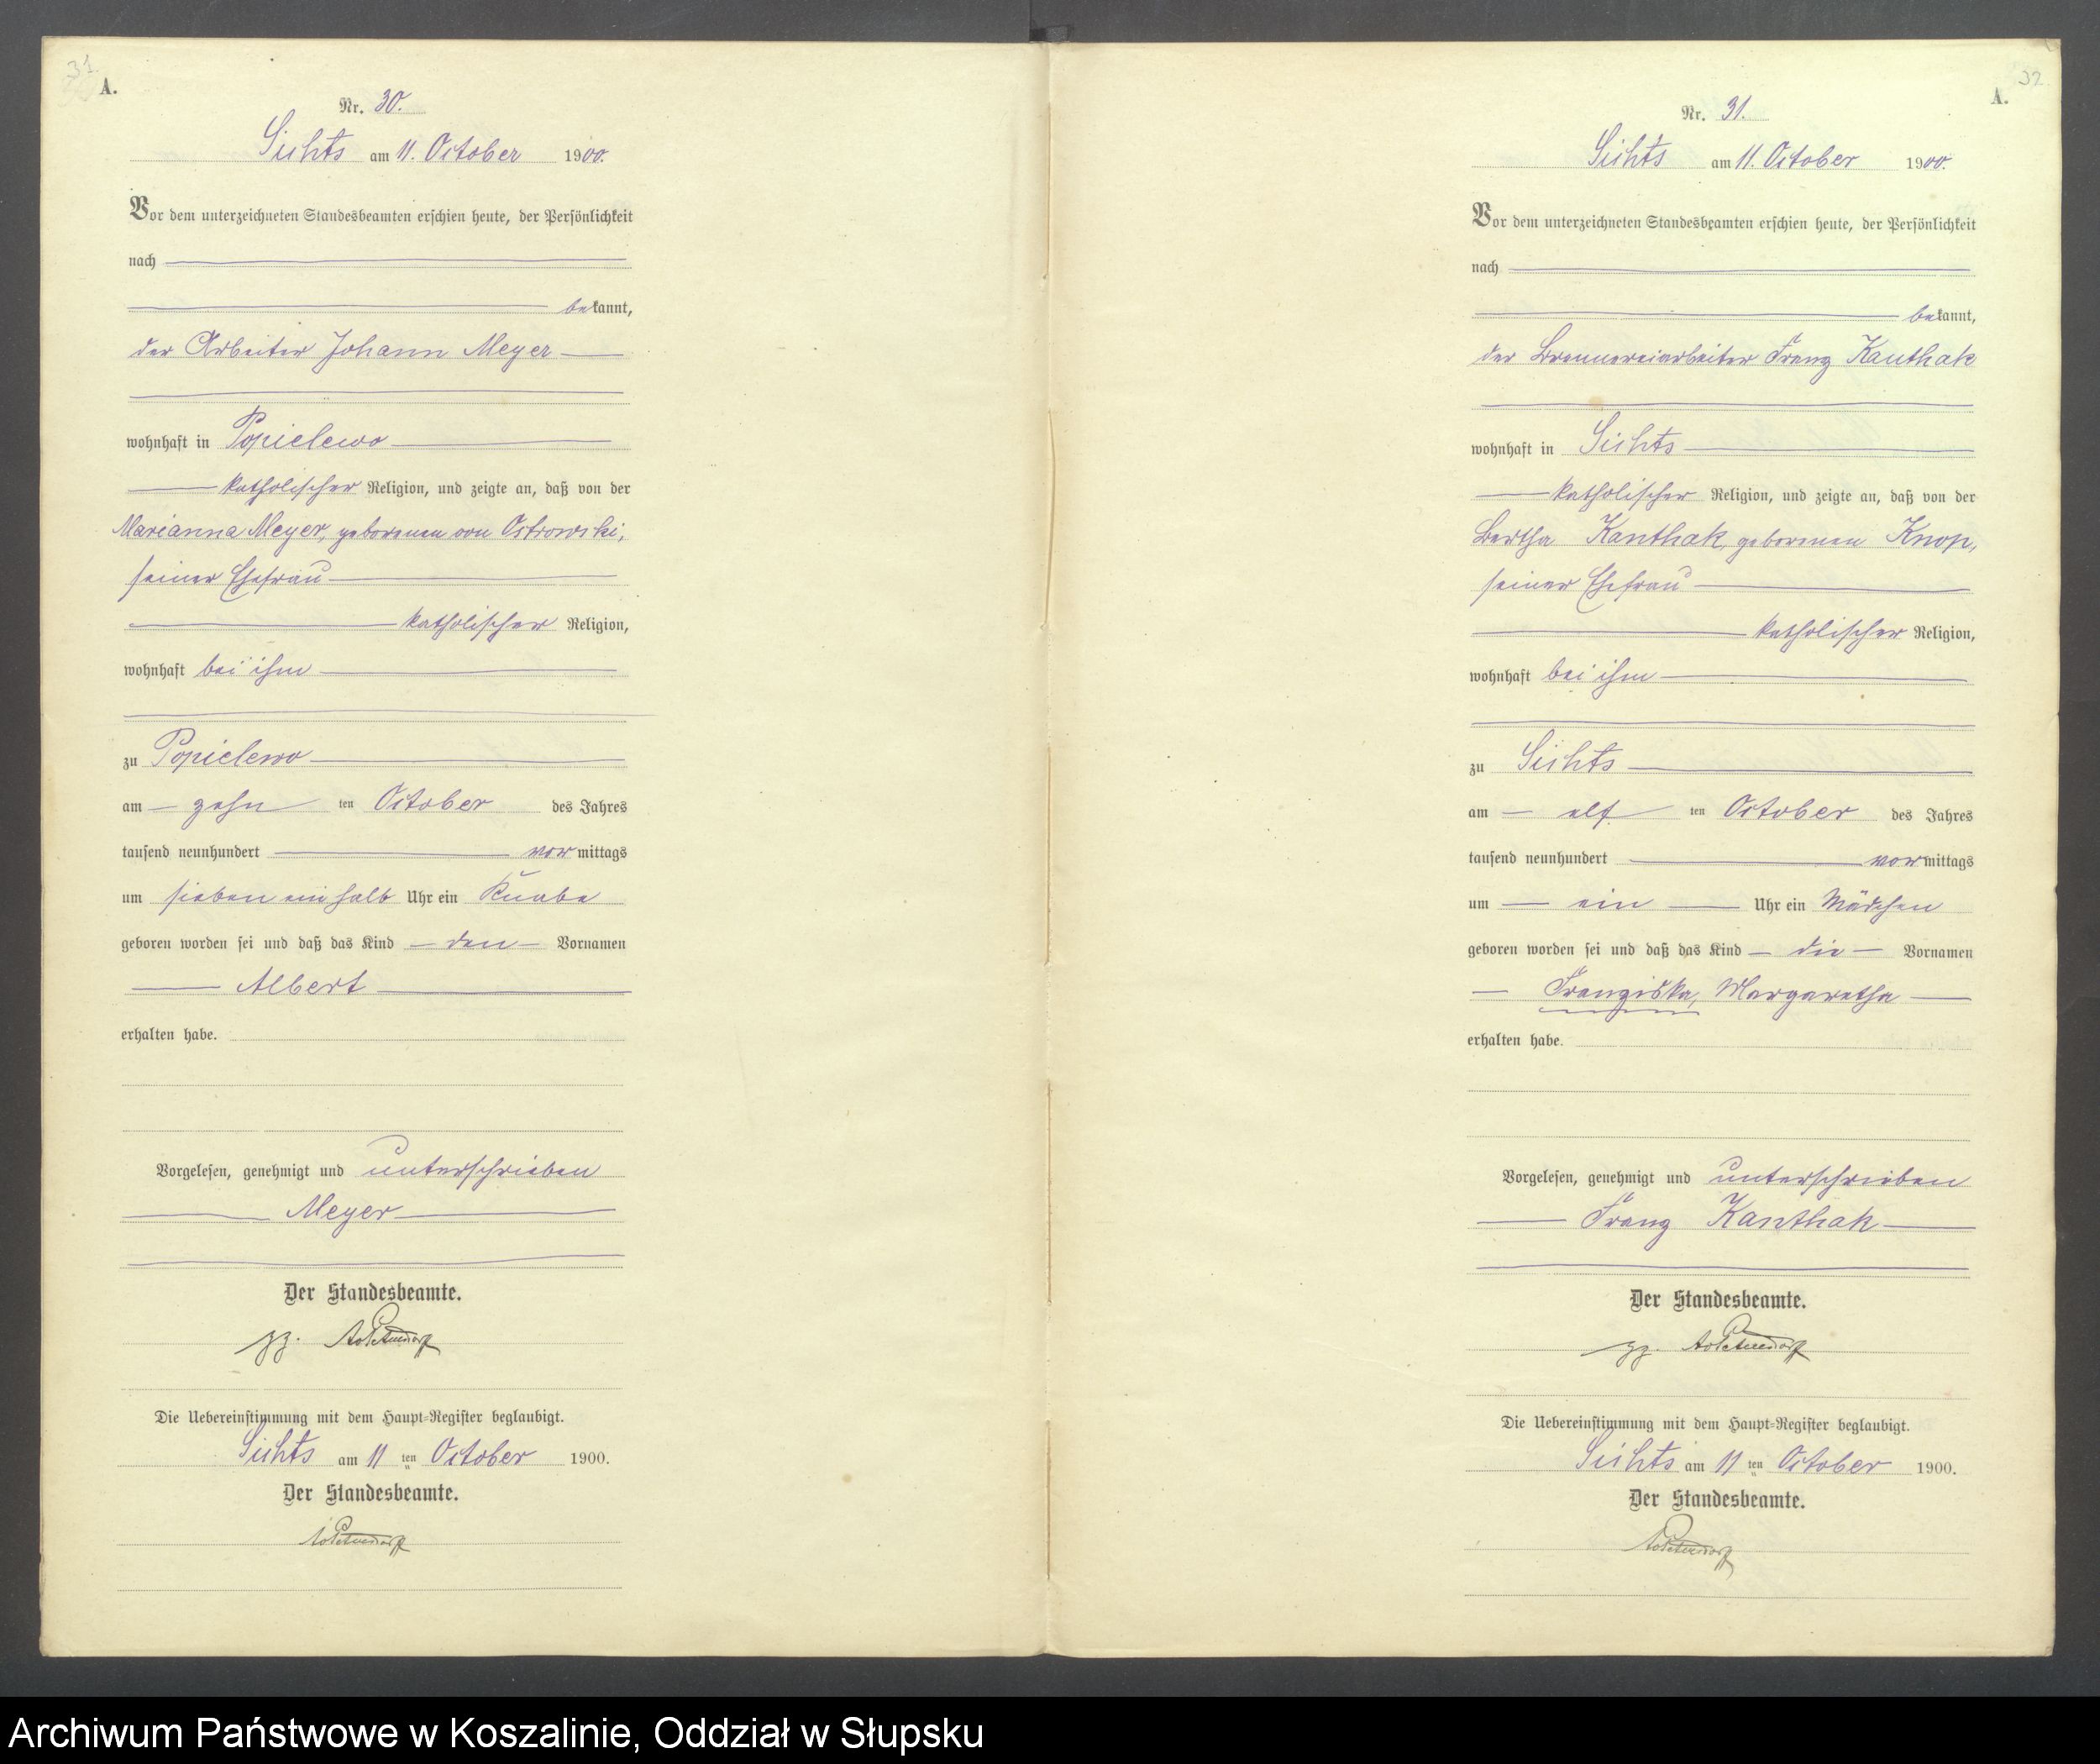 31
A.
Nr. 30.
Sichts am 11. October 1900.
Vor dem unterzeichneten Standesbeamten erschien heute, der Persönlichkeit
nach
bekannt,
der Arbeiter Johann Meyer
wohnhaft in Popielewo
katholischer Religion, und zeigte an, daß von der
Marianna Meyer, geborenen von Ostrowski,
seiner Ehefrau
katholischer Religion,
wohnhaft bei ihm
zu Popielewo
am zehn ten October des Jahres
tausend neunhundert vormittags
um sieben ein halb Uhr ein Knabe
geboren worden sei und daß das Kind den Vornamen
Albert
erhalten habe.
Vorgelesen, genehmigt und unterschrieben
Meyer
Der Standesbeamte.
gz.
Die Uebereinstimmung mit dem Haupt-Register beglaubigt.
Sichts am 11 ten October 1900.
Der Standesbeamte.
32
A.
Nr. 31.
Sichts am 11. October 1900.
Vor dem unterzeichneten Standesbeamten erschien heute, der Persönlichkeit
nach
bekannt,
der Brennereiarbeiter Franz Kanthak
wohnhaft in Sichts
katholischer Religion, und zeigte an, daß von der
Bertha Kanthak, geborenen Knop,
seiner Ehefrau
katholischer Religion,
wohnhaft bei ihm
zu Sichts
am elf ten October des Jahres
tausend neunhundert vormittags
um ein Uhr ein Mädchen
geboren worden sei und daß das Kind die Vornamen
Franziska, Margaretha
erhalten habe.
Vorgelesen, genehmigt und unterschrieben
Franz Kanthak
Der Standesbeamte.
gz.
Die Uebereinstimmung mit dem Haupt-Register beglaubigt.
Sichts am 11 ten October 1900.
Der Standesbeamte.
Archiwum Państwowe w Koszalinie, Oddział w Słupsku